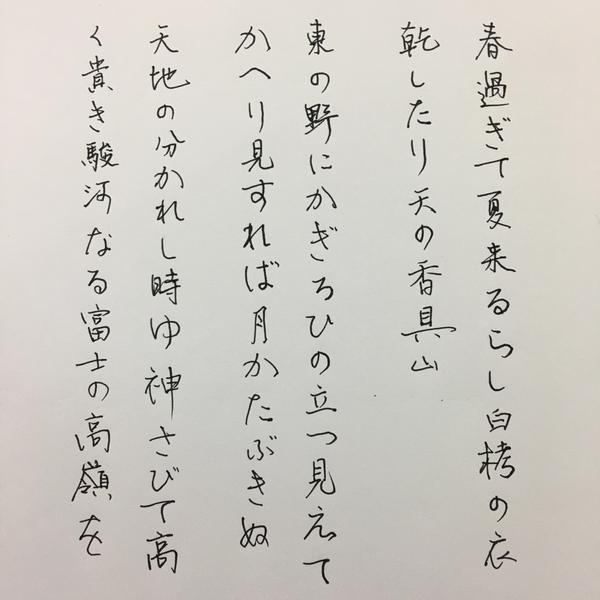 春過ぎて夏来るらし白栲の衣
乾したり天の香具山
東の野にかぎろひの立つ見えて
かへり見すれば月かたぶきぬ
天地の分かれし時ゆ神さびて高
く貴き駿河なる富士の高嶺を